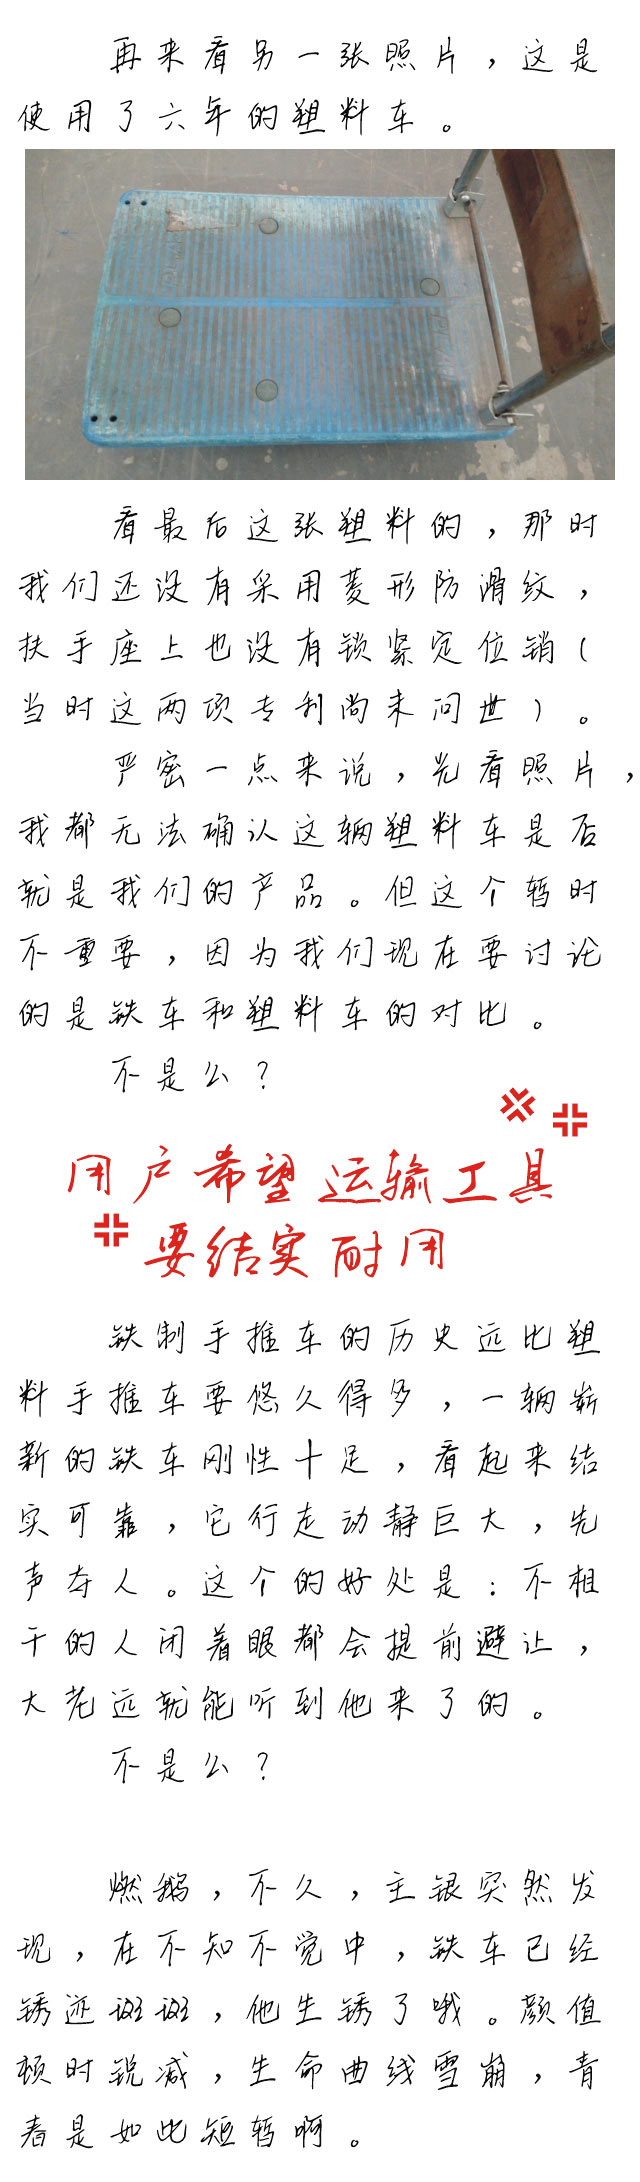 再来看另一张照片，这是
使用了六年的塑料车。
看最后这张塑料的，那时
我们还没有采用菱形防滑纹，
扶手座上也没有锁紧定位销（
当时这两项专利尚未问世）。
严密一点来说，光看照片，
我都无法确认这辆塑料车是否
就是我们的产品。但这个暂时
不重要，因为我们现在要讨论
的是铁车和塑料车的对比。
不是么？
用户希望运输工具
要结实耐用
铁制手推车的历史远比塑
料手推车要悠久得多，一辆崭
新的铁车刚性十足，看起来结
实可靠，它行走动静巨大，先
声夺人。这个的好处是：不相
干的人闭着眼都会提前避让，
大老远就能听到他来了的。
不是么？
燃鹅，不久，主银突然发
现，在不知不觉中，铁车已经
锈迹斑斑，他生锈了哦。颜值
顿时锐减，生命曲线雪崩，青
春是如此短暂啊。